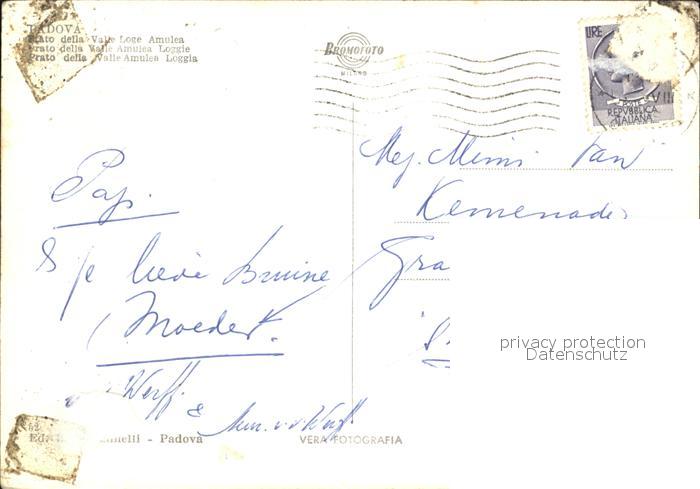 PADOVA
Prato della Valle Loge Amulea
Prato della Valle Amulea Loggie
Prato della Valle Amulea Loggia
BROMOFOTO
MILANO
LIRE
VIII
POSTE
REPVBBLICA
ITALIANA
Mej. Mimi van
Kemenade
Gra
Papi
& je lieve Bruine
Moeder.
Werff.
& v.d. Werff
privacy protection
Datenschutz
52
Ed. - Padova
VERA FOTOGRAFIA